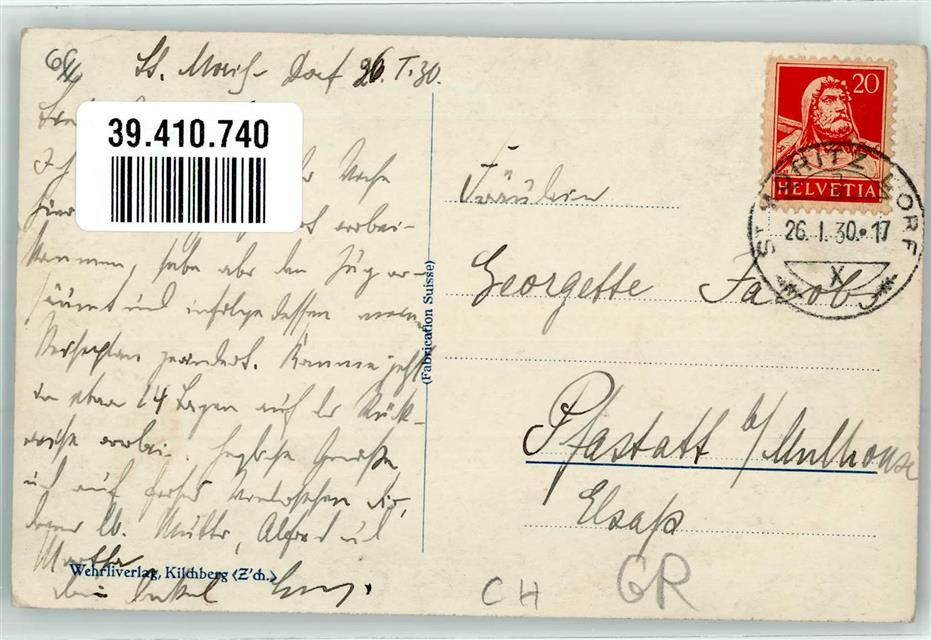 St. Moritz-Dorf 26.I.30.
39.410.740
Woche
vorbei-
kommen, habe aber den Zug ver-
säumt und infolgedessen meinen
Reiseplan geändert. Komme jetzt
in etwa 14 Tagen auf der Rück-
reise vorbei. Herzliche Grüsse
und auf frohes Wiedersehen dir,
deiner lb. Mutter, Alfred und
Martha
dein Onkel
Wehrliverlag, Kilchberg (Z'ch.)
(Fabrication Suisse)
20
HELVETIA
ST. MORITZ DORF
26. I. 30. 17
X
Fräulein
Georgette Jacobs
Pfastatt b/Mulhouse
Elsaß
CH GR